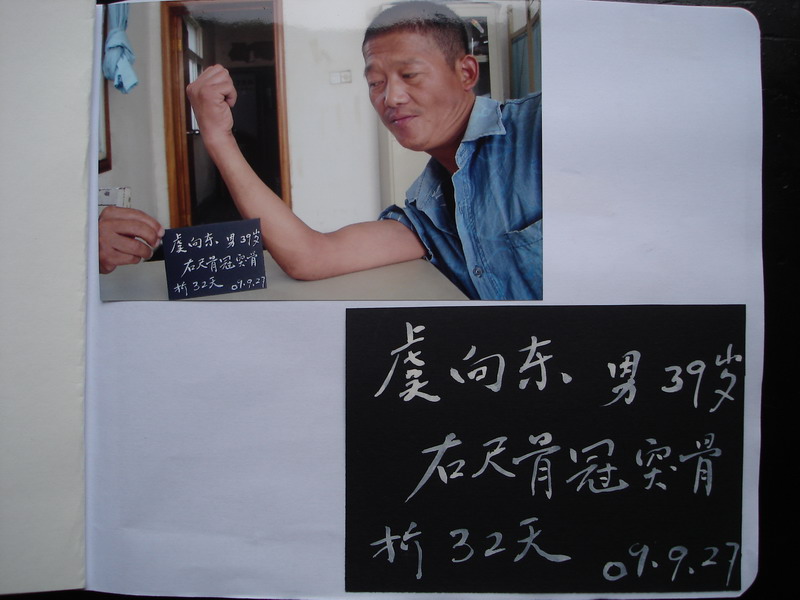 虞向东 男 39岁
右尺骨冠突骨
折 32天 09.9.27
虞向东、男 39岁
右尺骨冠突骨
折 32天 09.9.27